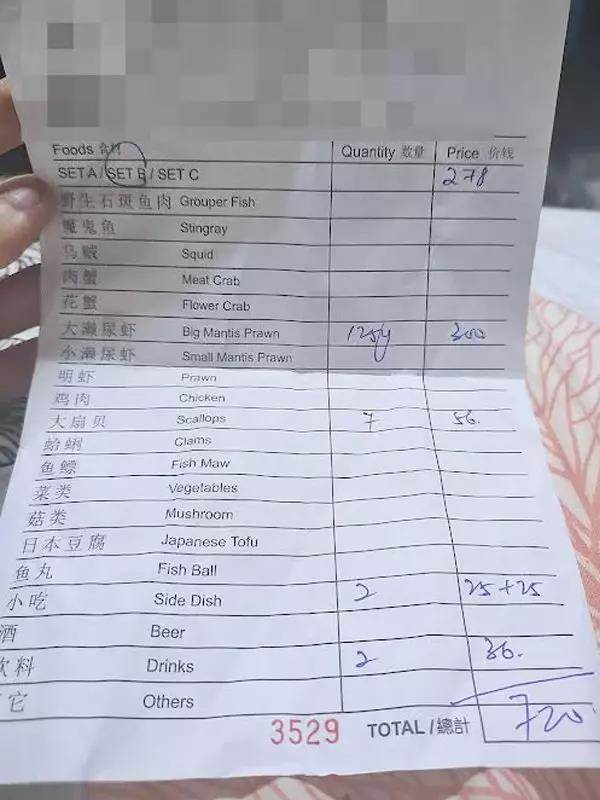 Foods 食材 Quantity 数量 Price 价钱
SET A / SET B / SET C 278
野生石斑鱼肉 Grouper Fish
魔鬼鱼 Stingray
乌贼 Squid
肉蟹 Meat Crab
花蟹 Flower Crab
大濑尿虾 Big Mantis Prawn 300
小濑尿虾 Small Mantis Prawn
明虾 Prawn
鸡肉 Chicken
大扇贝 Scallops 7 56.
蛤蜊 Clams
鱼鳔 Fish Maw
菜类 Vegetables
菇类 Mushroom
日本豆腐 Japanese Tofu
鱼丸 Fish Ball
小吃 Side Dish 2 25+25
酒 Beer
饮料 Drinks 2 36.
它 Others
3529 TOTAL / 總計 720